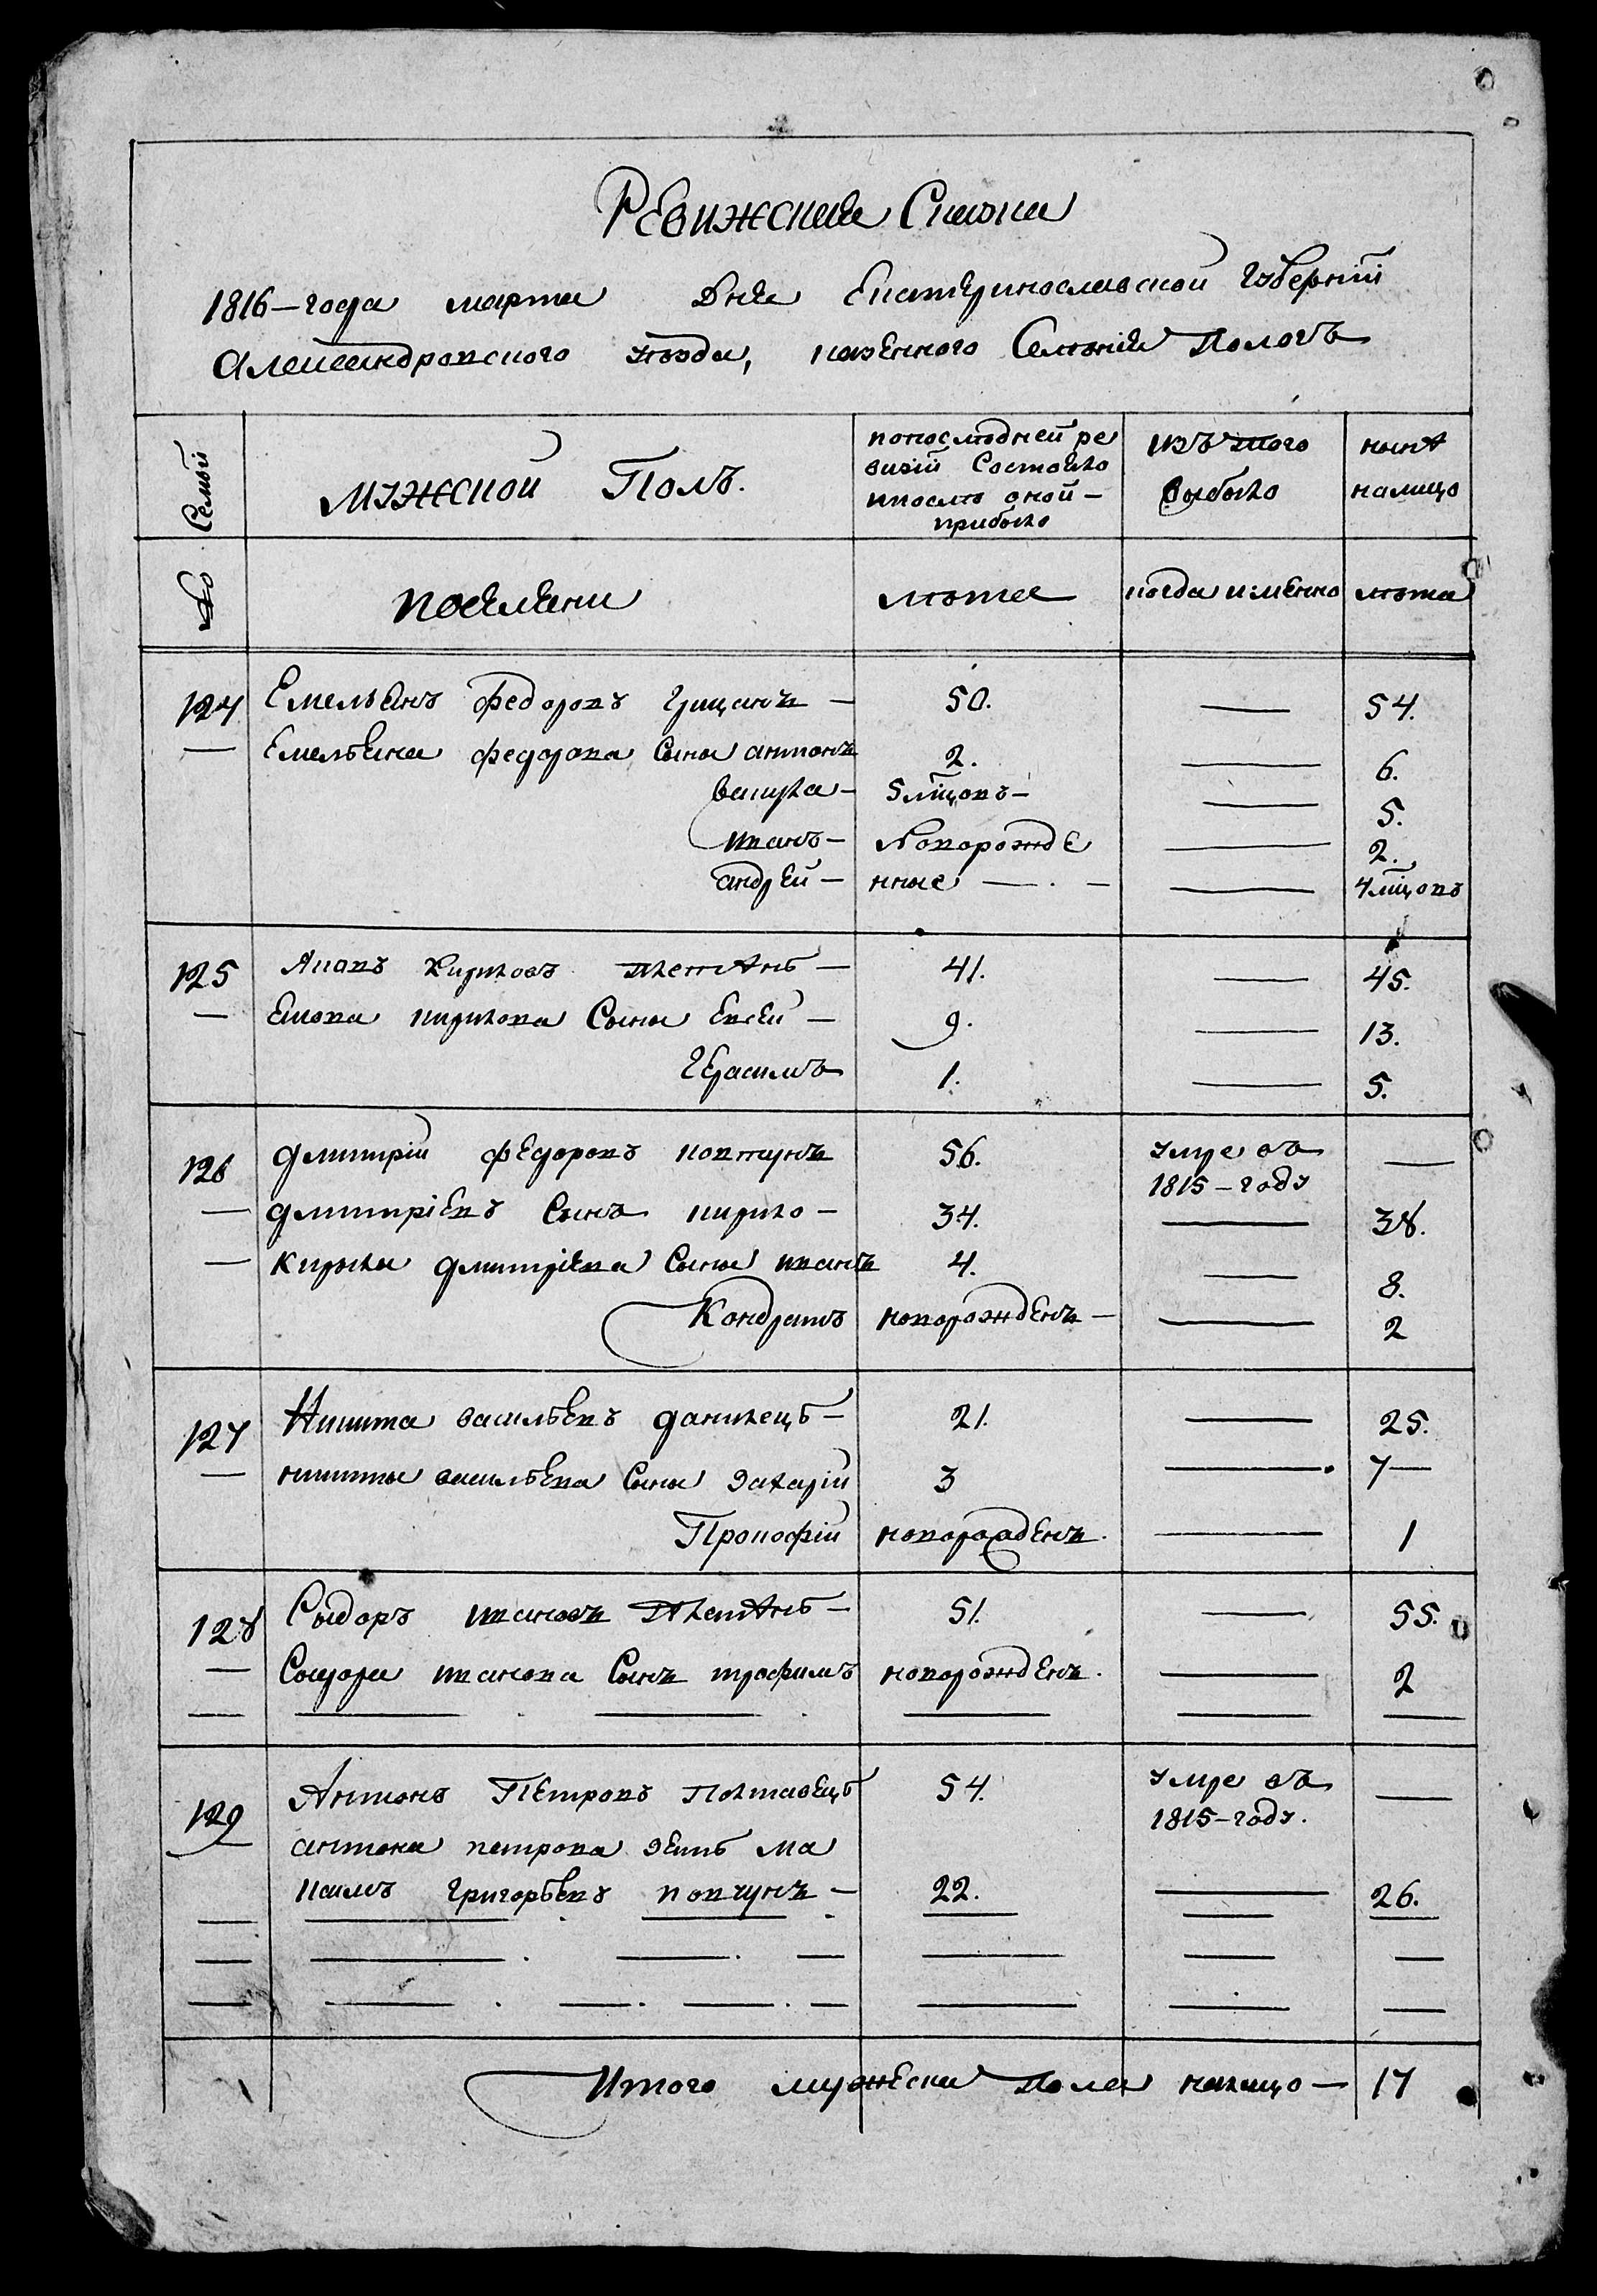 Ревижские Скаски
1816-года марта Дня Екатеринославской Губерній
Александровского уѣзда, казенного Селенія Пологъ
Семьи
мужской Полъ.
попослѣдней ре
визіи Состояло
ипослѣ оной-
прибыло
изъ того
выбыло
нынѣ
налицо
№
поселяни
лѣта
когда имянно
лѣта
124 Емельянъ федоровъ Грицанъ - 50. — 54.
— Емельяна федорова Сыны антонъ 2. — 6.
вакула- 5 мцовъ- — 5.
иванъ- Новорожде — 2.
андрей- нные — 4 мцовъ
125 Яковъ Кириловъ - 41. — 45.
— Якова кирилова Сыны Евсей - 9. — 13.
Герасимъ 1. — 5.
126 дмитрій федоровъ ковтунъ 56. умре въ —
1815-году
— дмитріевъ Сынъ кирило - 34. — 38.
— Кирила дмитріева Сыны иванъ 4. — 8.
Кондратъ новорожденъ - — 2
127 Никита васильевъ данилецъ - 21. — 25.
— никиты васильева Сыны Захарій 3 — 7-
Прокофій новорожденъ. — 1
128 Сыдоръ ивановъ - 51. — 55.
— Сыдора иванова Сынъ трофимъ новорожденъ. — 2
129 Антонъ Петровъ Полтавецъ 54. умре въ —
1815-году.
антона петрова зеть Ма
ксимъ Григорьевъ ковтунъ - 22. — 26.
Итого мужеска Пола налицо - 17